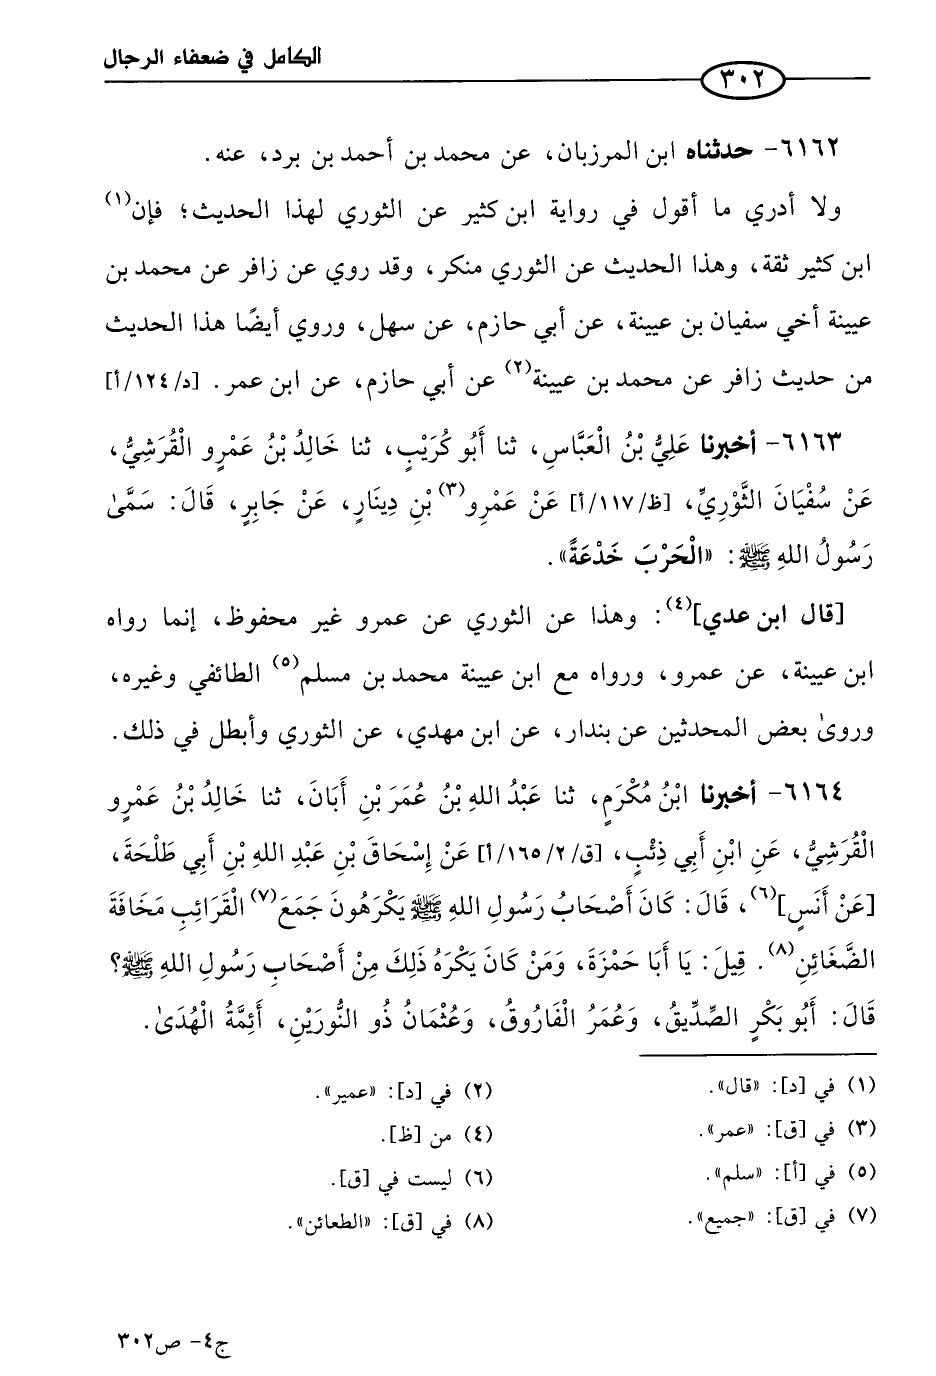 الكامل في ضعفاء الرجال
٣٠٢
٦١٦٢- حدثناه ابن المرزبان، عن محمد بن أحمد بن برد، عنه.
ولا أدري ما أقول في رواية ابن كثير عن الثوري لهذا الحديث؛ فإن(١)
ابن كثير ثقة، وهذا الحديث عن الثوري منكر، وقد روي عن زافر عن محمد بن
عيينة أخي سفيان بن عيينة، عن أبي حازم، عن سهل، وروي أيضًا هذا الحديث
من حديث زافر عن محمد بن عيينة(٢) عن أبي حازم، عن ابن عمر. [د/١٢٤/أ]
٦١٦٣- أخبرنا عَلِيُّ بْنُ الْعَبَّاسِ، ثنا أَبُو كُرَيْبٍ، ثنا خَالِدُ بْنُ عَمْرٍو الْقُرَشِيُّ،
عَنْ سُفْيَانَ الثَّوْرِيِّ، [ظ/١١٧/أ] عَنْ عَمْرِو(٣) بْنِ دِينَارٍ، عَنْ جَابِرٍ، قَالَ: سَمَّىٰ
رَسُولُ اللهِ ﷺ: «الْحَرْبَ خَدْعَةً».
[قال ابن عدي](٤): وهذا عن الثوري عن عمرو غير محفوظ، إنما رواه
ابن عيينة، عن عمرو، ورواه مع ابن عيينة محمد بن مسلم(٥) الطائفي وغيره،
وروىٰ بعض المحدثين عن بندار، عن ابن مهدي، عن الثوري وأبطل في ذلك.
٦١٦٤- أخبرنا ابْنُ مُكْرَمٍ، ثنا عَبْدُ اللهِ بْنُ عُمَرَ بْنِ أَبَانَ، ثنا خَالِدُ بْنُ عَمْرٍو
الْقُرَشِيُّ، عَنِ ابْنِ أَبِي ذِئْبٍ، [ق/١٦٥/٢/أ] عَنْ إِسْحَاقَ بْنِ عَبْدِ اللهِ بْنِ أَبِي طَلْحَةَ،
[عَنْ أَنَسٍ](٦)، قَالَ: كَانَ أَصْحَابُ رَسُولِ اللهِ ﷺ يَكْرَهُونَ جَمَعَ(٧) الْقَرَائِبِ مَخَافَةَ
الضَّغَائِنِ(٨). قِيلَ: يَا أَبَا حَمْزَةَ، وَمَنْ كَانَ يَكْرَهُ ذَلِكَ مِنْ أَصْحَابِ رَسُولِ اللهِ ﷺ؟
قَالَ: أَبُو بَكْرٍ الصِّدِّيقُ، وَعُمَرُ الْفَارُوقُ، وَعُثْمَانُ ذُو النُّورَيْنِ، أَئِمَّةُ الْهُدَىٰ.
(١) في [د]: «قال». (٢) في [د]: «عمير».
(٣) في [ق]: «عمر». (٤) من [ظ].
(٥) في [أ]: «سلم». (٦) ليست في [ق].
(٧) في [ق]: «جميع». (٨) في [ق]: «الطعائن».
ج٤- ص٣٠٢